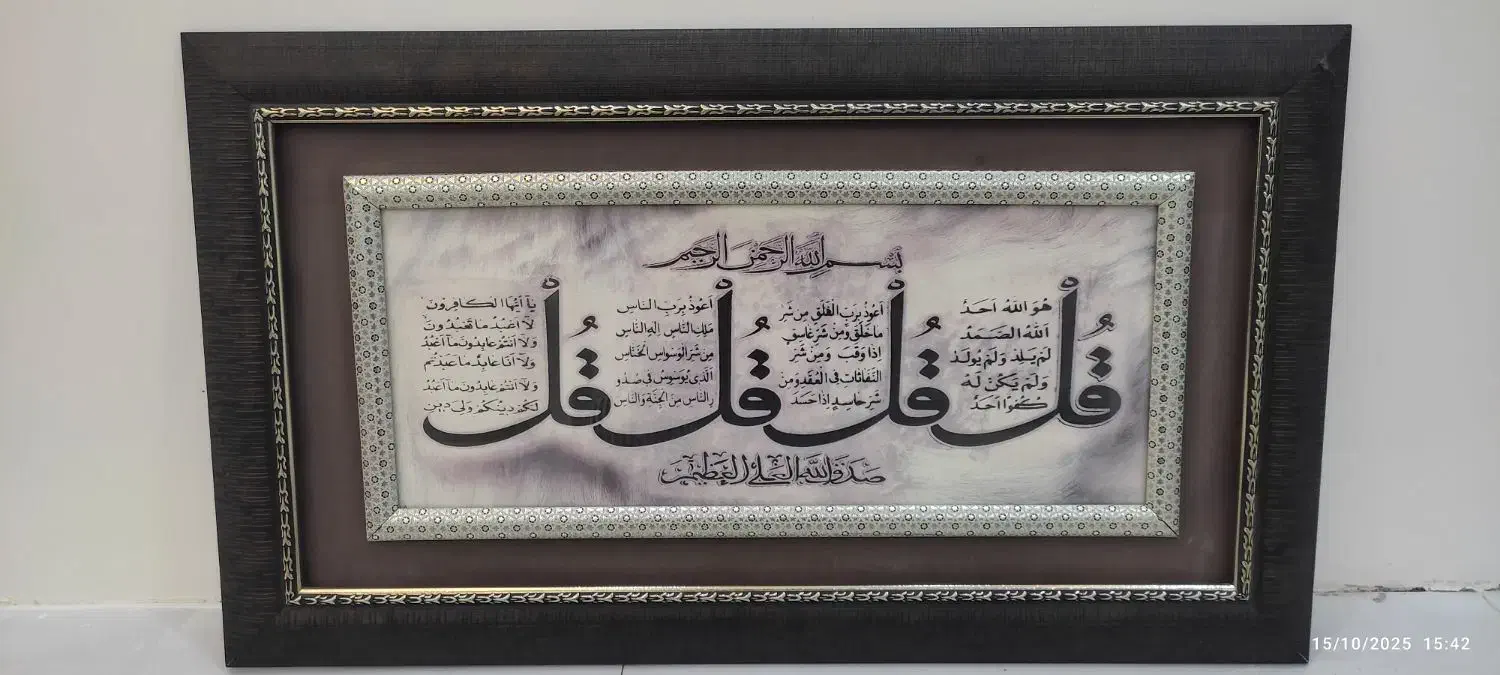 بسم الله الرحمن الرحيم
قل
هُوَ اللهُ اَحَدٌ
اَللهُ الصَّمَدُ
لَمْ يَلِدْ وَلَمْ يُولَدْ
وَلَمْ يَكُنْ لَهُ
كُفُوًا اَحَدٌ
قل
اَعُوذُ بِرَبِّ الْفَلَقِ مِنْ شَرِّ
مَا خَلَقَ وَمِنْ شَرِّ غَاسِقٍ
اِذَا وَقَبَ وَمِنْ شَرِّ
النَّفَّاثَاتِ فِى الْعُقَدِ وَمِنْ
شَرِّ حَاسِدٍ اِذَا حَسَدَ
قل
اَعُوذُ بِرَبِّ النَّاسِ
مَلِكِ النَّاسِ اِلٰهِ النَّاسِ
مِنْ شَرِّ الْوَسْوَاسِ الْخَنَّاسِ
اَلَّذِى يُوَسْوِسُ فِى صُدُو
رِ النَّاسِ مِنَ الْجِنَّةِ وَالنَّاسِ
قل
يَآ اَيُّهَا الْكَافِرُونَ
لَآ اَعْبُدُ مَا تَعْبُدُونَ
وَلَآ اَنْتُمْ عَابِدُونَ مَآ اَعْبُدُ
وَلَآ اَنَا عَابِدٌ مَا عَبَدْتُمْ
وَلَآ اَنْتُمْ عَابِدُونَ مَآ اَعْبُدُ
لَكُمْ دِينُكُمْ وَلِىَ دِينِ
صدق الله العلي العظيم
15/10/2025 15:42